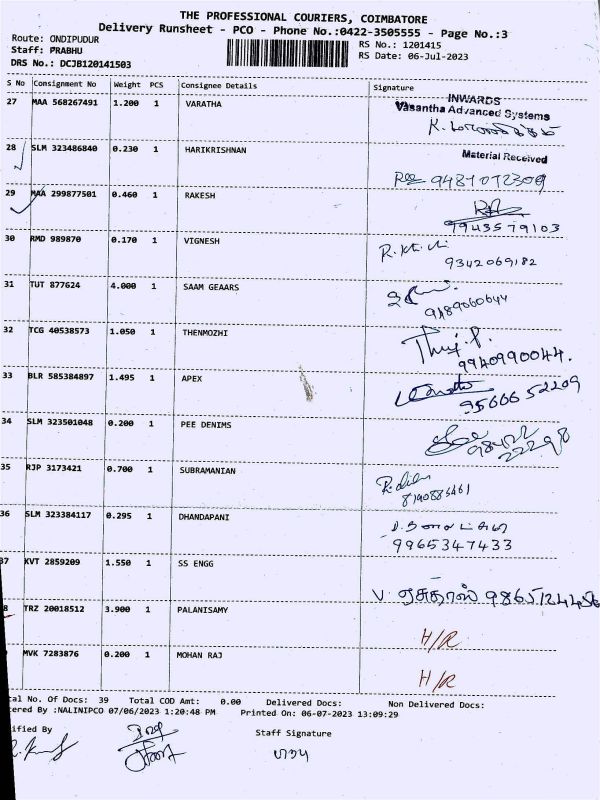 THE PROFESSIONAL COURIERS, COIMBATORE
Delivery Runsheet - PCO - Phone No.:0422-3505555 - Page No.:3
Route: ONDIPUDUR RS No.: 1201415
Staff: PRABHU RS Date: 06-Jul-2023
DRS No.: DCJB120141503
S No Consignment No Weight PCS Consignee Details Signature
27 MAA 568267491 1.200 1 VARATHA
INWARDS
Vasantha Advanced Systems
28 SLM 323486840 0.230 1 HARIKRISHNAN
Material Received
9487072309
29 MAA 299877501 0.460 1 RAKESH
9943579103
30 RMD 989870 0.170 1 VIGNESH
9342069182
31 TUT 877624 4.000 1 SAAM GEAARS
9489060644
32 TCG 40538573 1.050 1 THENMOZHI
9940990044.
33 BLR 585384897 1.495 1 APEX
95666 52209
34 SLM 323501048 0.200 1 PEE DENIMS
35 RJP 3173421 0.700 1 SUBRAMANIAN
36 SLM 323384117 0.295 1 DHANDAPANI
9965347433
37 KVT 2859209 1.550 1 SS ENGG
V. ஏசுதாஸ்
8 TRZ 20018512 3.900 1 PALANISAMY
H/R
MVK 7283876 0.200 1 MOHAN RAJ
H/R
tal No. Of Docs: 39 Total COD Amt: 0.00 Delivered Docs: Non Delivered Docs:
tered By :NALINIPCO 07/06/2023 1:20:48 PM Printed On: 06-07-2023 13:09:29
ified By Staff Signature